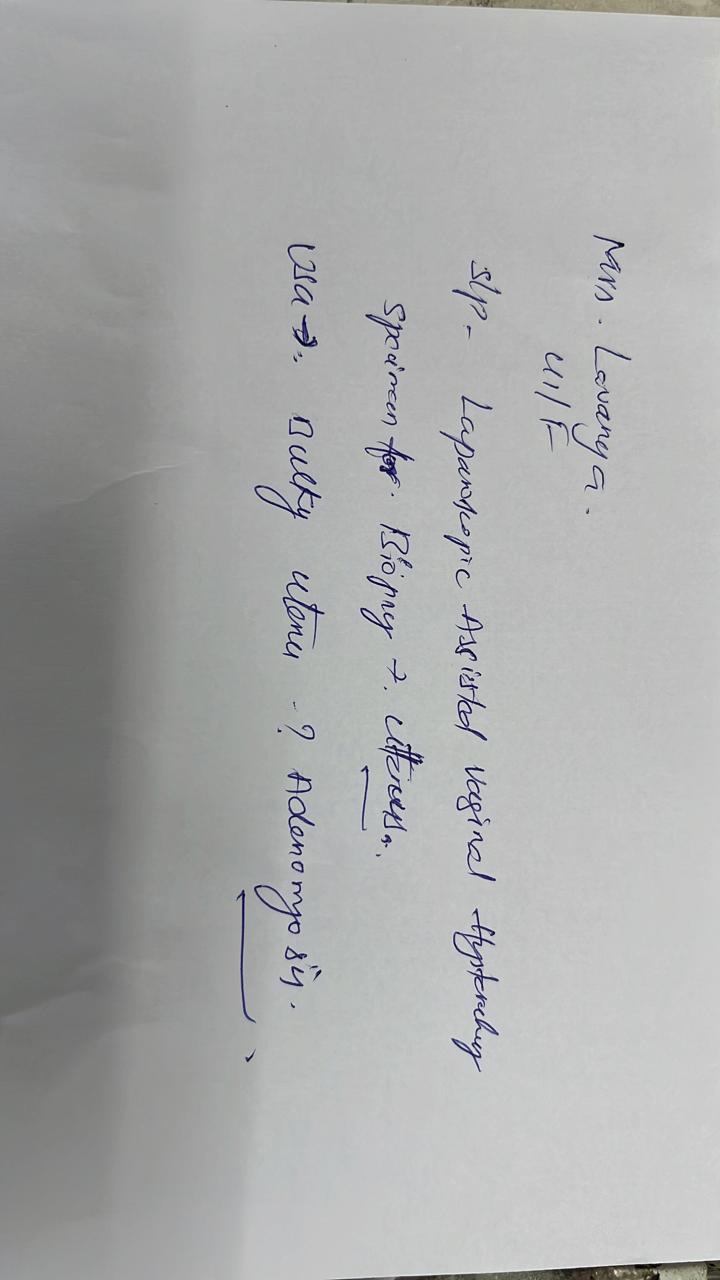 Mrs. Lavanya.
41/F
S/p - Laparoscopic Assisted Vaginal Hysterectomy
Specimen for. Biopsy → Uterus.
USG → Bulky uterus - ? Adenomyosis.